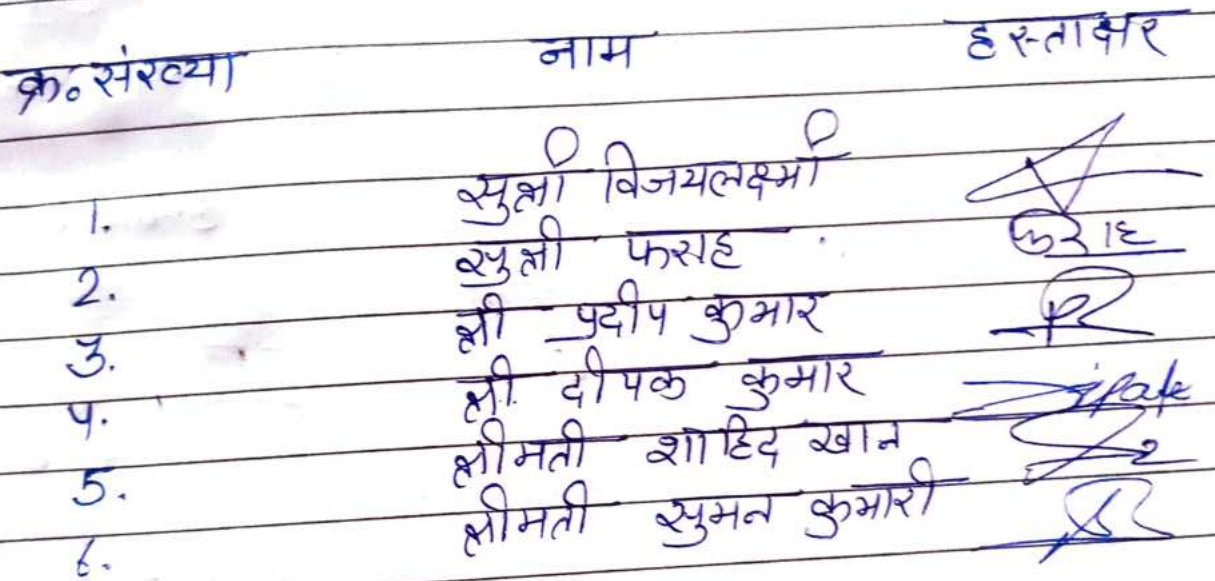 क्र॰ संख्या नाम हस्ताक्षर
1. सुश्री विजयलक्ष्मी
2. सुश्री फराह फराह
3. श्री प्रदीप कुमार
4. श्री दीपक कुमार Dipak
5. श्रीमती शाहिद खान
6. श्रीमती सुमन कुमारी